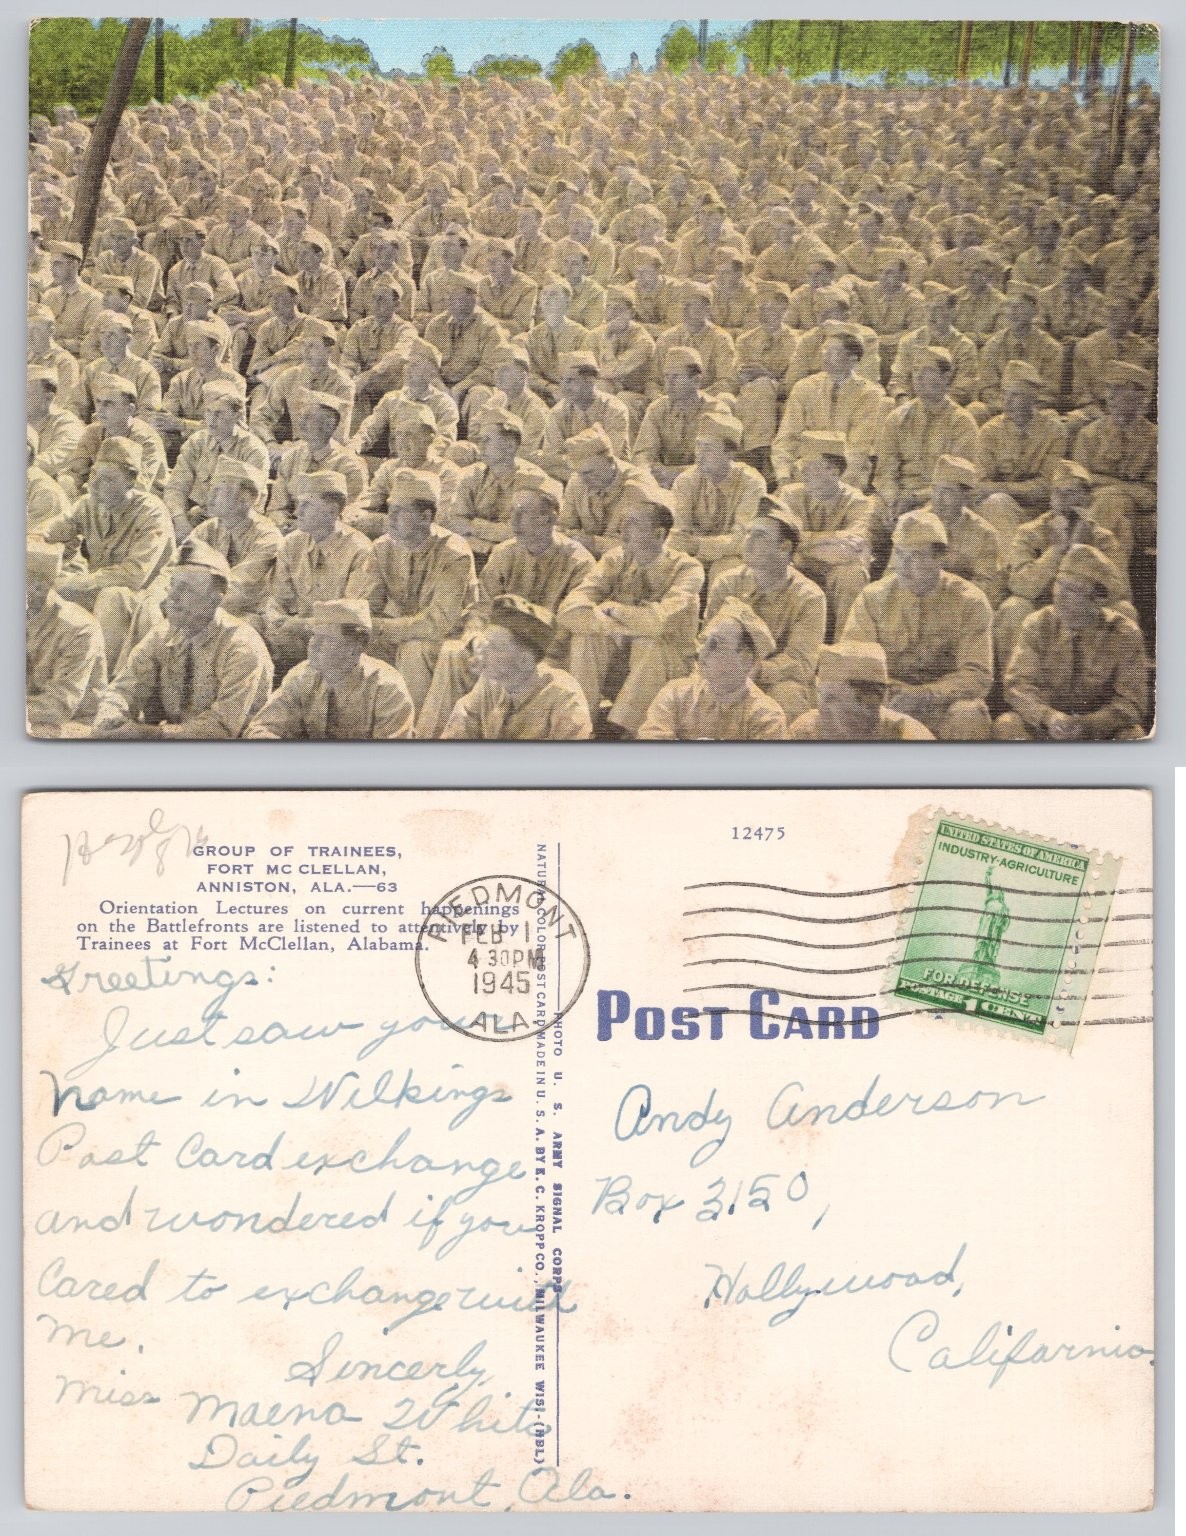 GROUP OF TRAINEES,
FORT MC CLELLAN,
ANNISTON, ALA.—63
Orientation Lectures on current happenings
on the Battlefronts are listened to attentively by
Trainees at Fort McClellan, Alabama.
Greetings:
Just saw your
name in Wilkings
Post Card exchange
and wondered if you
Cared to exchange with
me.
Sincerly,
Miss Maena White
Daily St.
Piedmont, Ala.
PIEDMONT
FEB 1
4 30 PM
1945
ALA.
NATURAL COLOR POST CARD MADE IN U. S. A. BY E. C. KROPP CO., MILWAUKEE WIS. (HBL)
PHOTO U. S. ARMY SIGNAL CORPS
12475
POST CARD
UNITED STATES OF AMERICA
INDUSTRY-AGRICULTURE
FOR DEFENSE
POSTAGE 1 CENT
Andy Anderson
Box 3150,
Hollywood,
California.